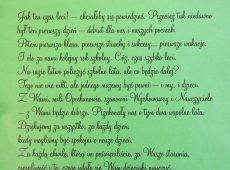 Jak ten czas leci! – chciałoby się powiedzieć. Przecież tak niedawno
był ten pierwszy dzień – debiut dla nas i naszych pociech.
Potem pierwsza klasa, pierwsze strachy i sukcesy... pierwsze wakacje.
I oto za nami kolejny rok szkolny. Cóż, czas szybko leci.
Na razie łatwo policzyć szkolne lata, ale co będzie dalej?
Tego nie wie nikt, ale jednego możemy być pewni – i my, i dzieci.
Z Wami, mili Opiekunowie, szanowni Wychowawcy i Nauczyciele
– z Wami będzie dobrze. Przekonały nas o tym dwa wspólne lata.
Dziękujemy za wszystko, za każdy dzień,
kiedy mogliśmy być spokojni o nasze dzieci.
Za każdą chwilę, którą im poświęciliście, za Wasze starania,
cierpliwość i to, czego udało się Wam dzieciaki nauczyć